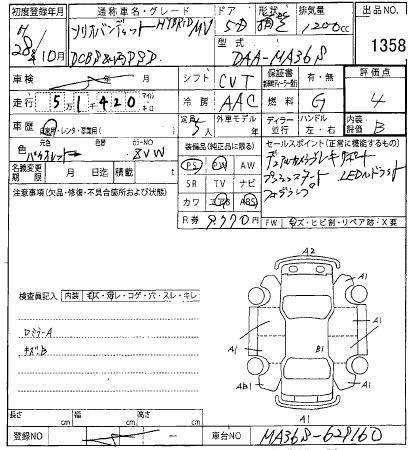 初度登録年月
H28年10月
通称車名・グレード
ソリオバンディット HYBRID MV
ドア 5D
形状 箱型
排気量 1200cc
出品NO 1358
DCBS
型式 DAA-MA36S
車検 年 月
シフト CVT
保証書 有・無
評価点 4
走行 51420 マイル キロ
冷房 AAC
燃料 G
車歴 自家用・レンタ・事業用( )
定員 5人
外車モデル 年
ディーラー 並行
ハンドル 左・右
内装評価 B
色 元色 色番 カラーNO ZVW
装備品(純正品に限る)
セールスポイント(正常に機能するもの)
PS PW AW
デュアルカメラブレーキサポート
プッシュスタート LEDヘッドライト
フォグランプ
名義変更期限 月 日迄
積載
SR TV ナビ
注意事項(欠品・修復・不具合箇所および状態)
カワ エアB ABS
R券 9770円
FW キズ・ヒビ割・リペア跡・X要
A2
A1
A1
検査員記入 内装 キズ・汚レ・コゲ・穴・スレ・キレ
ロミラーA
キズB
A1
B1
A1
AB1
A1
A1
長さ cm
幅 cm
高さ cm
登録NO
車台NO MA36S-628160